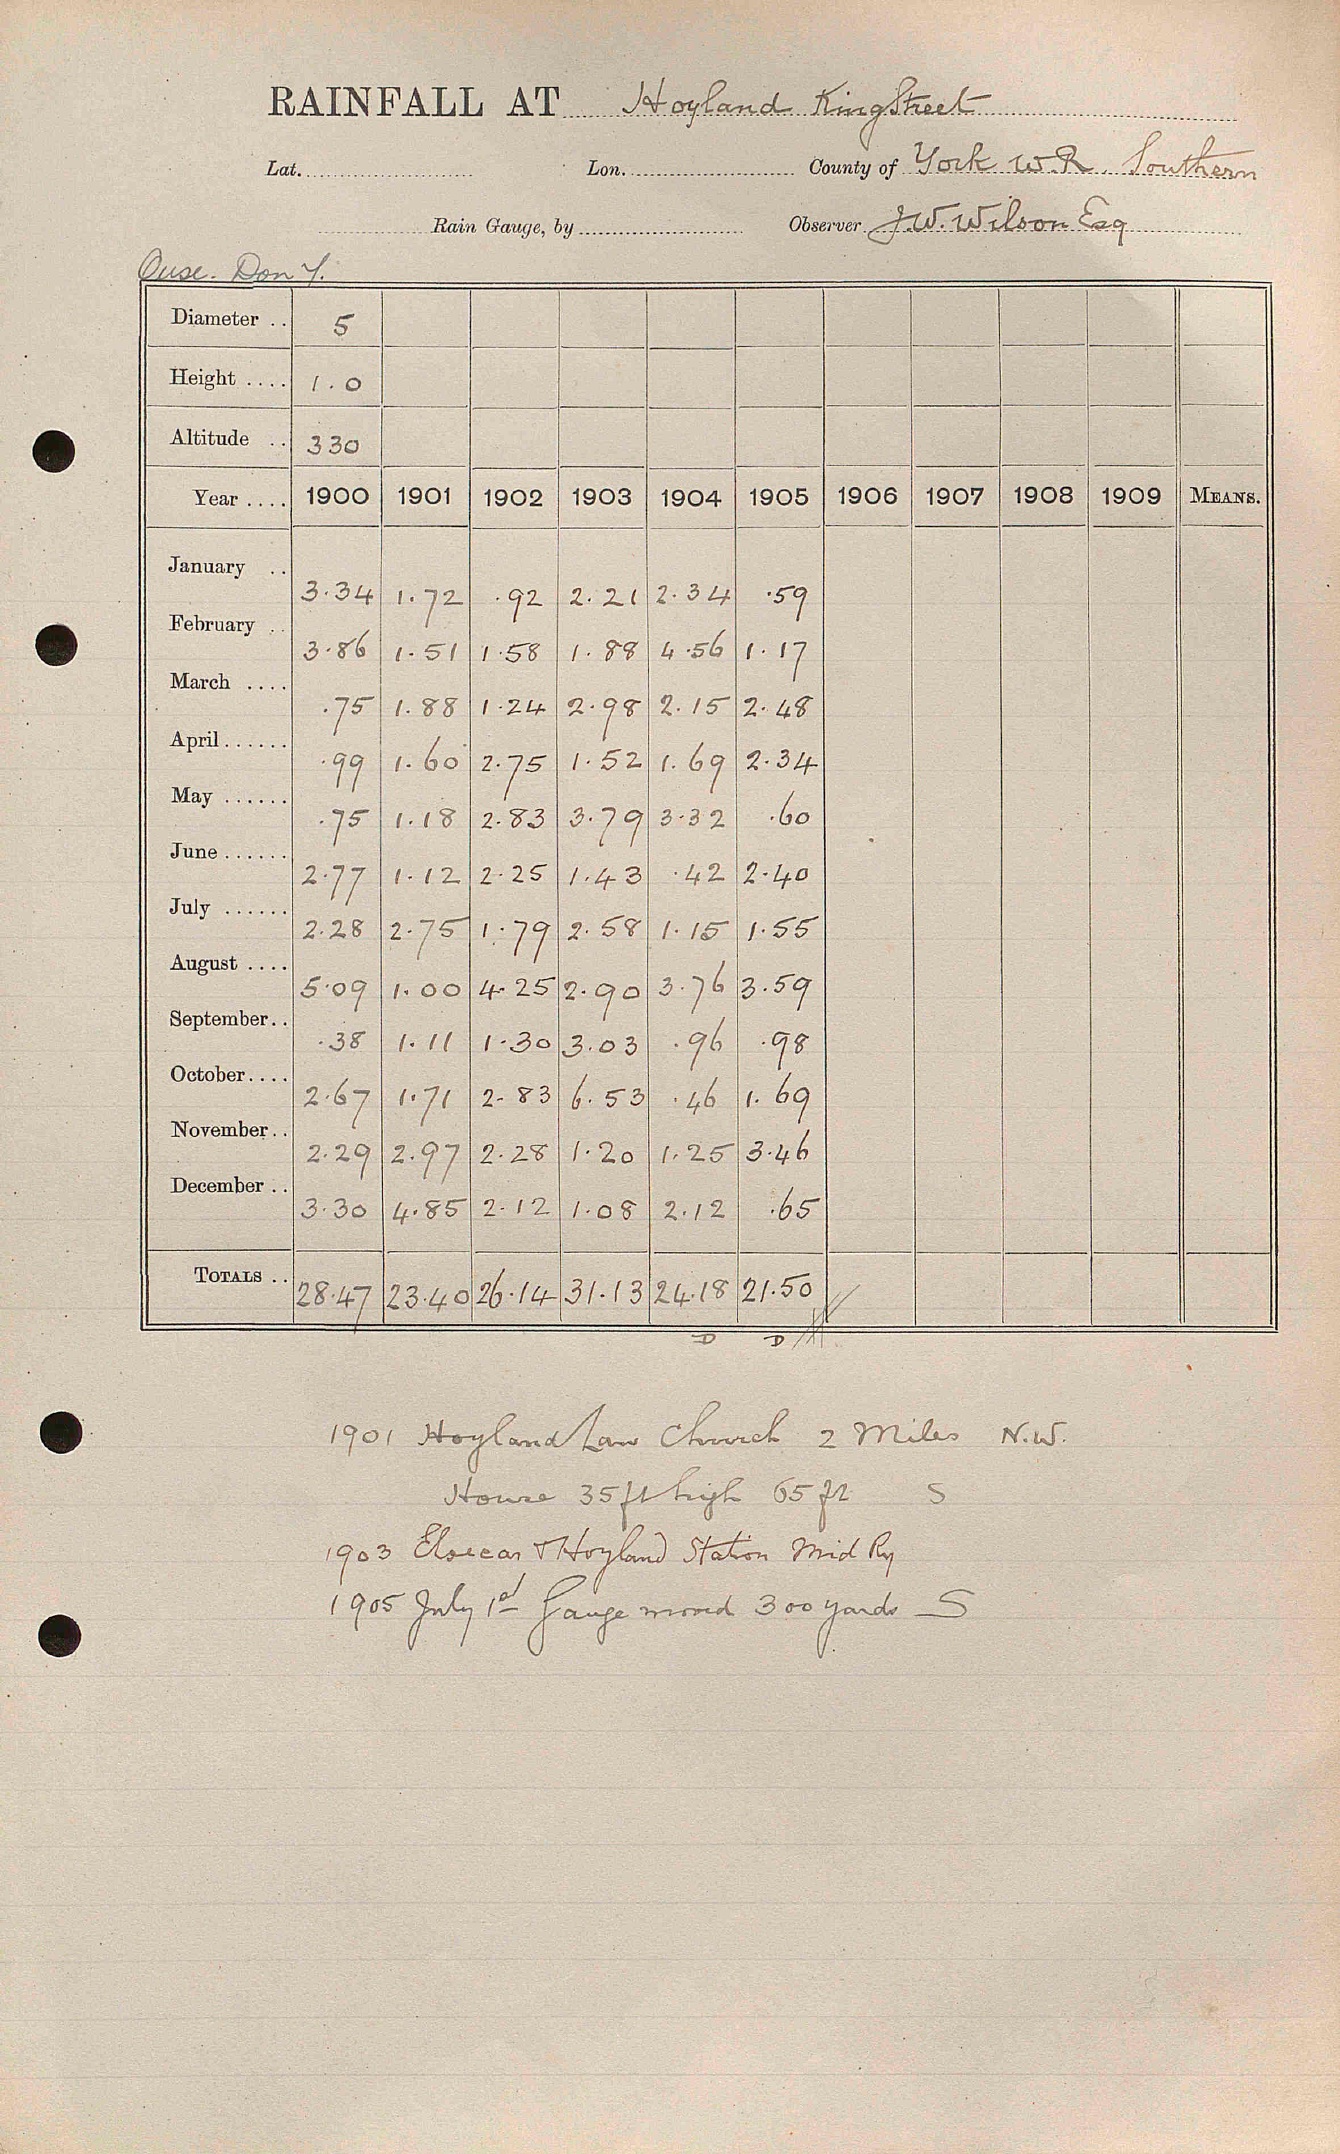 RAINFALL AT Hoyland King Street
Lat. Lon. County of York W.R. Southern
Rain Gauge, by Observer J.W. Wilson Esq
Ouse. Don Y.
Diameter .. 5
Height .... 1.0
Altitude .. 330
Year .... 1900 1901 1902 1903 1904 1905 1906 1907 1908 1909 MEANS.
January .. 3.34 1.72 .92 2.21 2.34 .59
February .. 3.86 1.51 1.58 1.88 4.56 1.17
March .... .75 1.88 1.24 2.98 2.15 2.48
April...... .99 1.60 2.75 1.52 1.69 2.34
May ...... .75 1.18 2.83 3.79 3.32 .60
June...... 2.77 1.12 2.25 1.43 .42 2.40
July ...... 2.28 2.75 1.79 2.58 1.15 1.55
August .... 5.09 1.00 4.25 2.90 3.76 3.59
September.. .38 1.11 1.30 3.03 .96 .98
October.... 2.67 1.71 2.83 6.53 .46 1.69
November.. 2.29 2.97 2.28 1.20 1.25 3.46
December .. 3.30 4.85 2.12 1.08 2.12 .65
TOTALS .. 28.47 23.40 26.14 31.13 24.18 21.50
D D
1901 Hoyland Law Church 2 Miles N.W.
House 35 ft high 65 ft S
1903 Elsecar & Hoyland Station Mid Ry
1905 July 1st Gauge moved 300 yards S